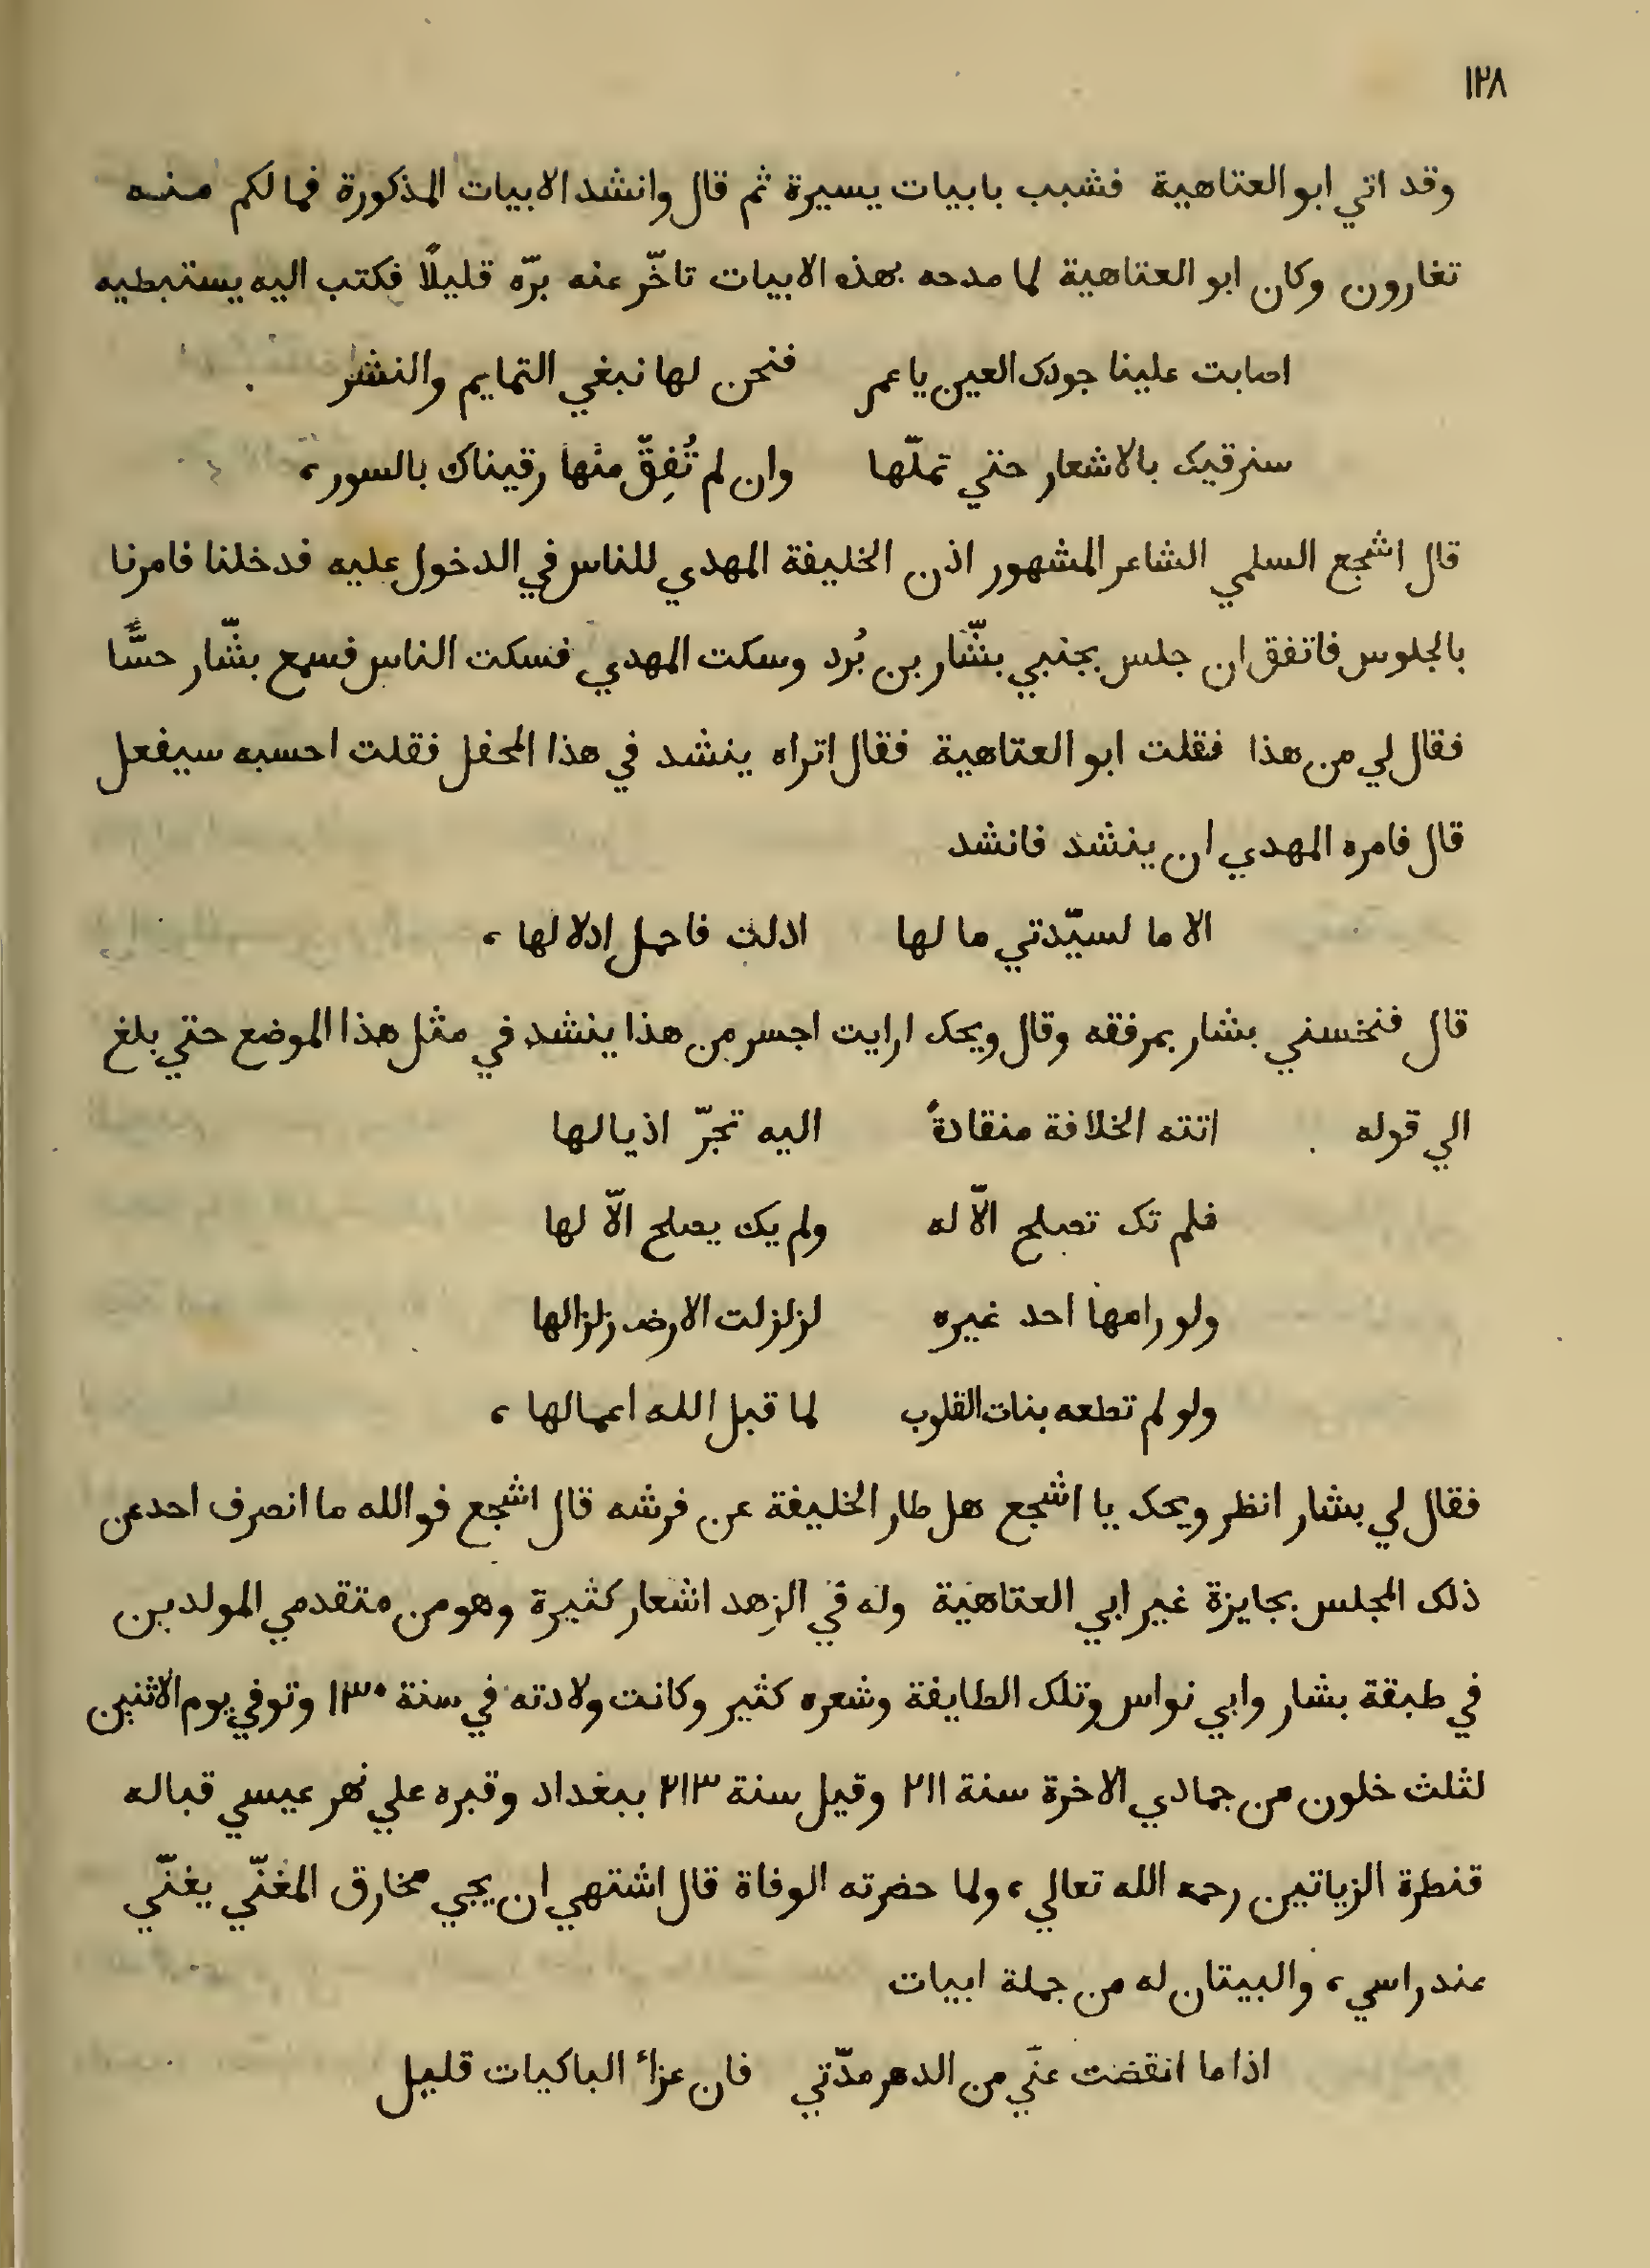 ١٢٨
وقد اتي ابو العتاهية فشبب بابيات يسيرة ثم قال وانشد الابيات المذكورة فما لكم منه
تغارون وكان ابو العتاهية لما مدحه بهذه الابيات تاخّر عنه برّه قليلًا فكتب اليه يستبطيه
اصابت علينا جودك العين يا عمر فنحن لها نبغي التمايم والنشر
سنرقيك بالاشعار حتي تملّها وان لم تُفِقّ منها رقيناك بالسور،
قال اشجع السلمي الشاعر المشهور اذن الخليفة المهدي للناس في الدخول عليه فدخلنا فامرنا
بالجلوس فاتفق ان جلس بجنبي بشّار بن بُرد وسكت المهدي فسكت الناس فسمع بشّار حسًّا
فقال لي من هذا فقلت ابو العتاهية فقال اتراه ينشد في هذا المحفل فقلت احسبه سيفعل
قال فامره المهدي ان ينشد فانشد
الا ما لسيّدتي ما لها ادلت فاحمل ادلالها،
قال فنخسني بشار بمرفقه وقال ويحك ارايت اجسر من هذا ينشد في مثل هذا الموضع حتي بلغ
الي قوله اتته الخلافة منقادةً اليه تجرّ اذيالها
فلم تك تصلح الّا له ولم يك يصلح الّا لها
ولو رامها احد غيره لزلزلت الارض زلزالها
ولو لم تطعه بنات القلوب لما قبل الله اعمالها،
فقال لي بشار انظر ويحك يا اشجع هل طار الخليفة عن فرشه قال اشجع فوالله ما انصرف احد عن
ذلك المجلس بجايزة غير ابي العتاهية وله في الزهد اشعار كثيرة وهو من متقدمي المولدين
في طبقة بشار وابي نواس وتلك الطايفة وشعره كثير وكانت ولادته في سنة ١٣٠ وتوفي يوم الاثنين
لثلث خلون من جمادي الاخرة سنة ٢١١ وقيل سنة ٢١٣ ببغداد وقبره علي نهر عيسي قباله
قنطرة الزياتين رحمه الله تعالي، ولما حضرته الوفاة قال اشتهي ان يجي مخارق المغنّي يغنّي
عند راسي، والبيتان له من جملة ابيات
اذا ما انقضت عنّي من الدهر مدّتي فان عزاء الباكيات قليل